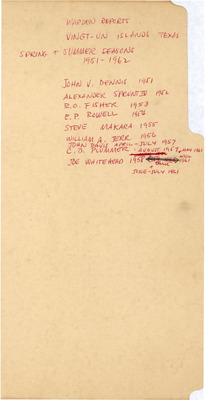 WARDEN REPORTS
VINGT-UN ISLANDS TEXAS
SPRING + SUMMER SEASONS
1951-1962
JOHN V. DENNIS 1951
ALEXANDER SPRUNT IV 1952
R.O. FISHER 1953
C.P. ROWELL 1954
STEVE MAKARA 1955
WILLIAM A. 1956
JOHN DAVIS APRIL-JULY 1957
C.D. PLUMMER AUGUST 1957 + MAY 1961
JOE WHITEHEAD 1958
1961
JUNE-JULY 1961